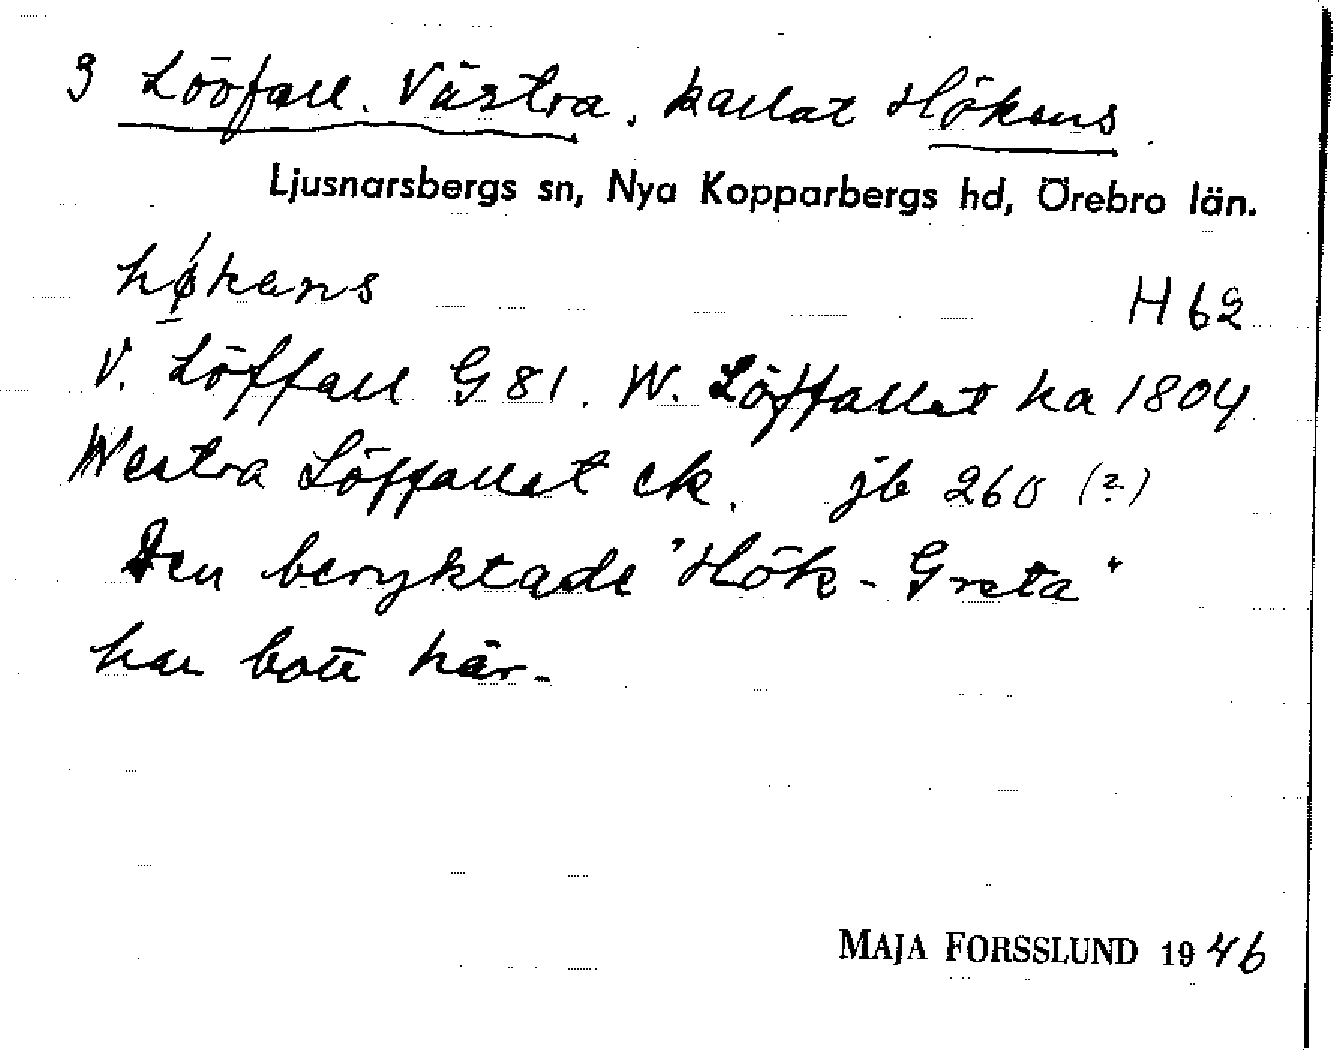 3 Lövfall. Västra, kallat Hökens.
Ljusnarsbergs sn, Nya Kopparbergs hd, Örebro län.
høkans
H 62
V. Löffall G 81. W. Löffallet ka 1804
Westra Löffallet ek. jb 260 (?)
Den beryktade "Hök-Greta"
har bott här.
MAJA FORSSLUND 1946